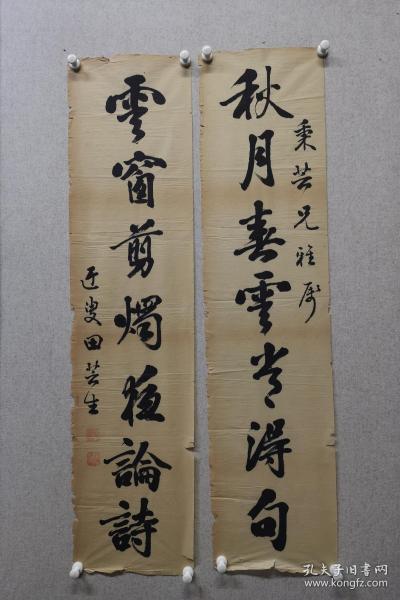 秋月春雲常得句
秉芸兄雅屬
雲窗剪燭夜論詩
近叟田芸生
孔夫子旧书网
book.kongfz.com